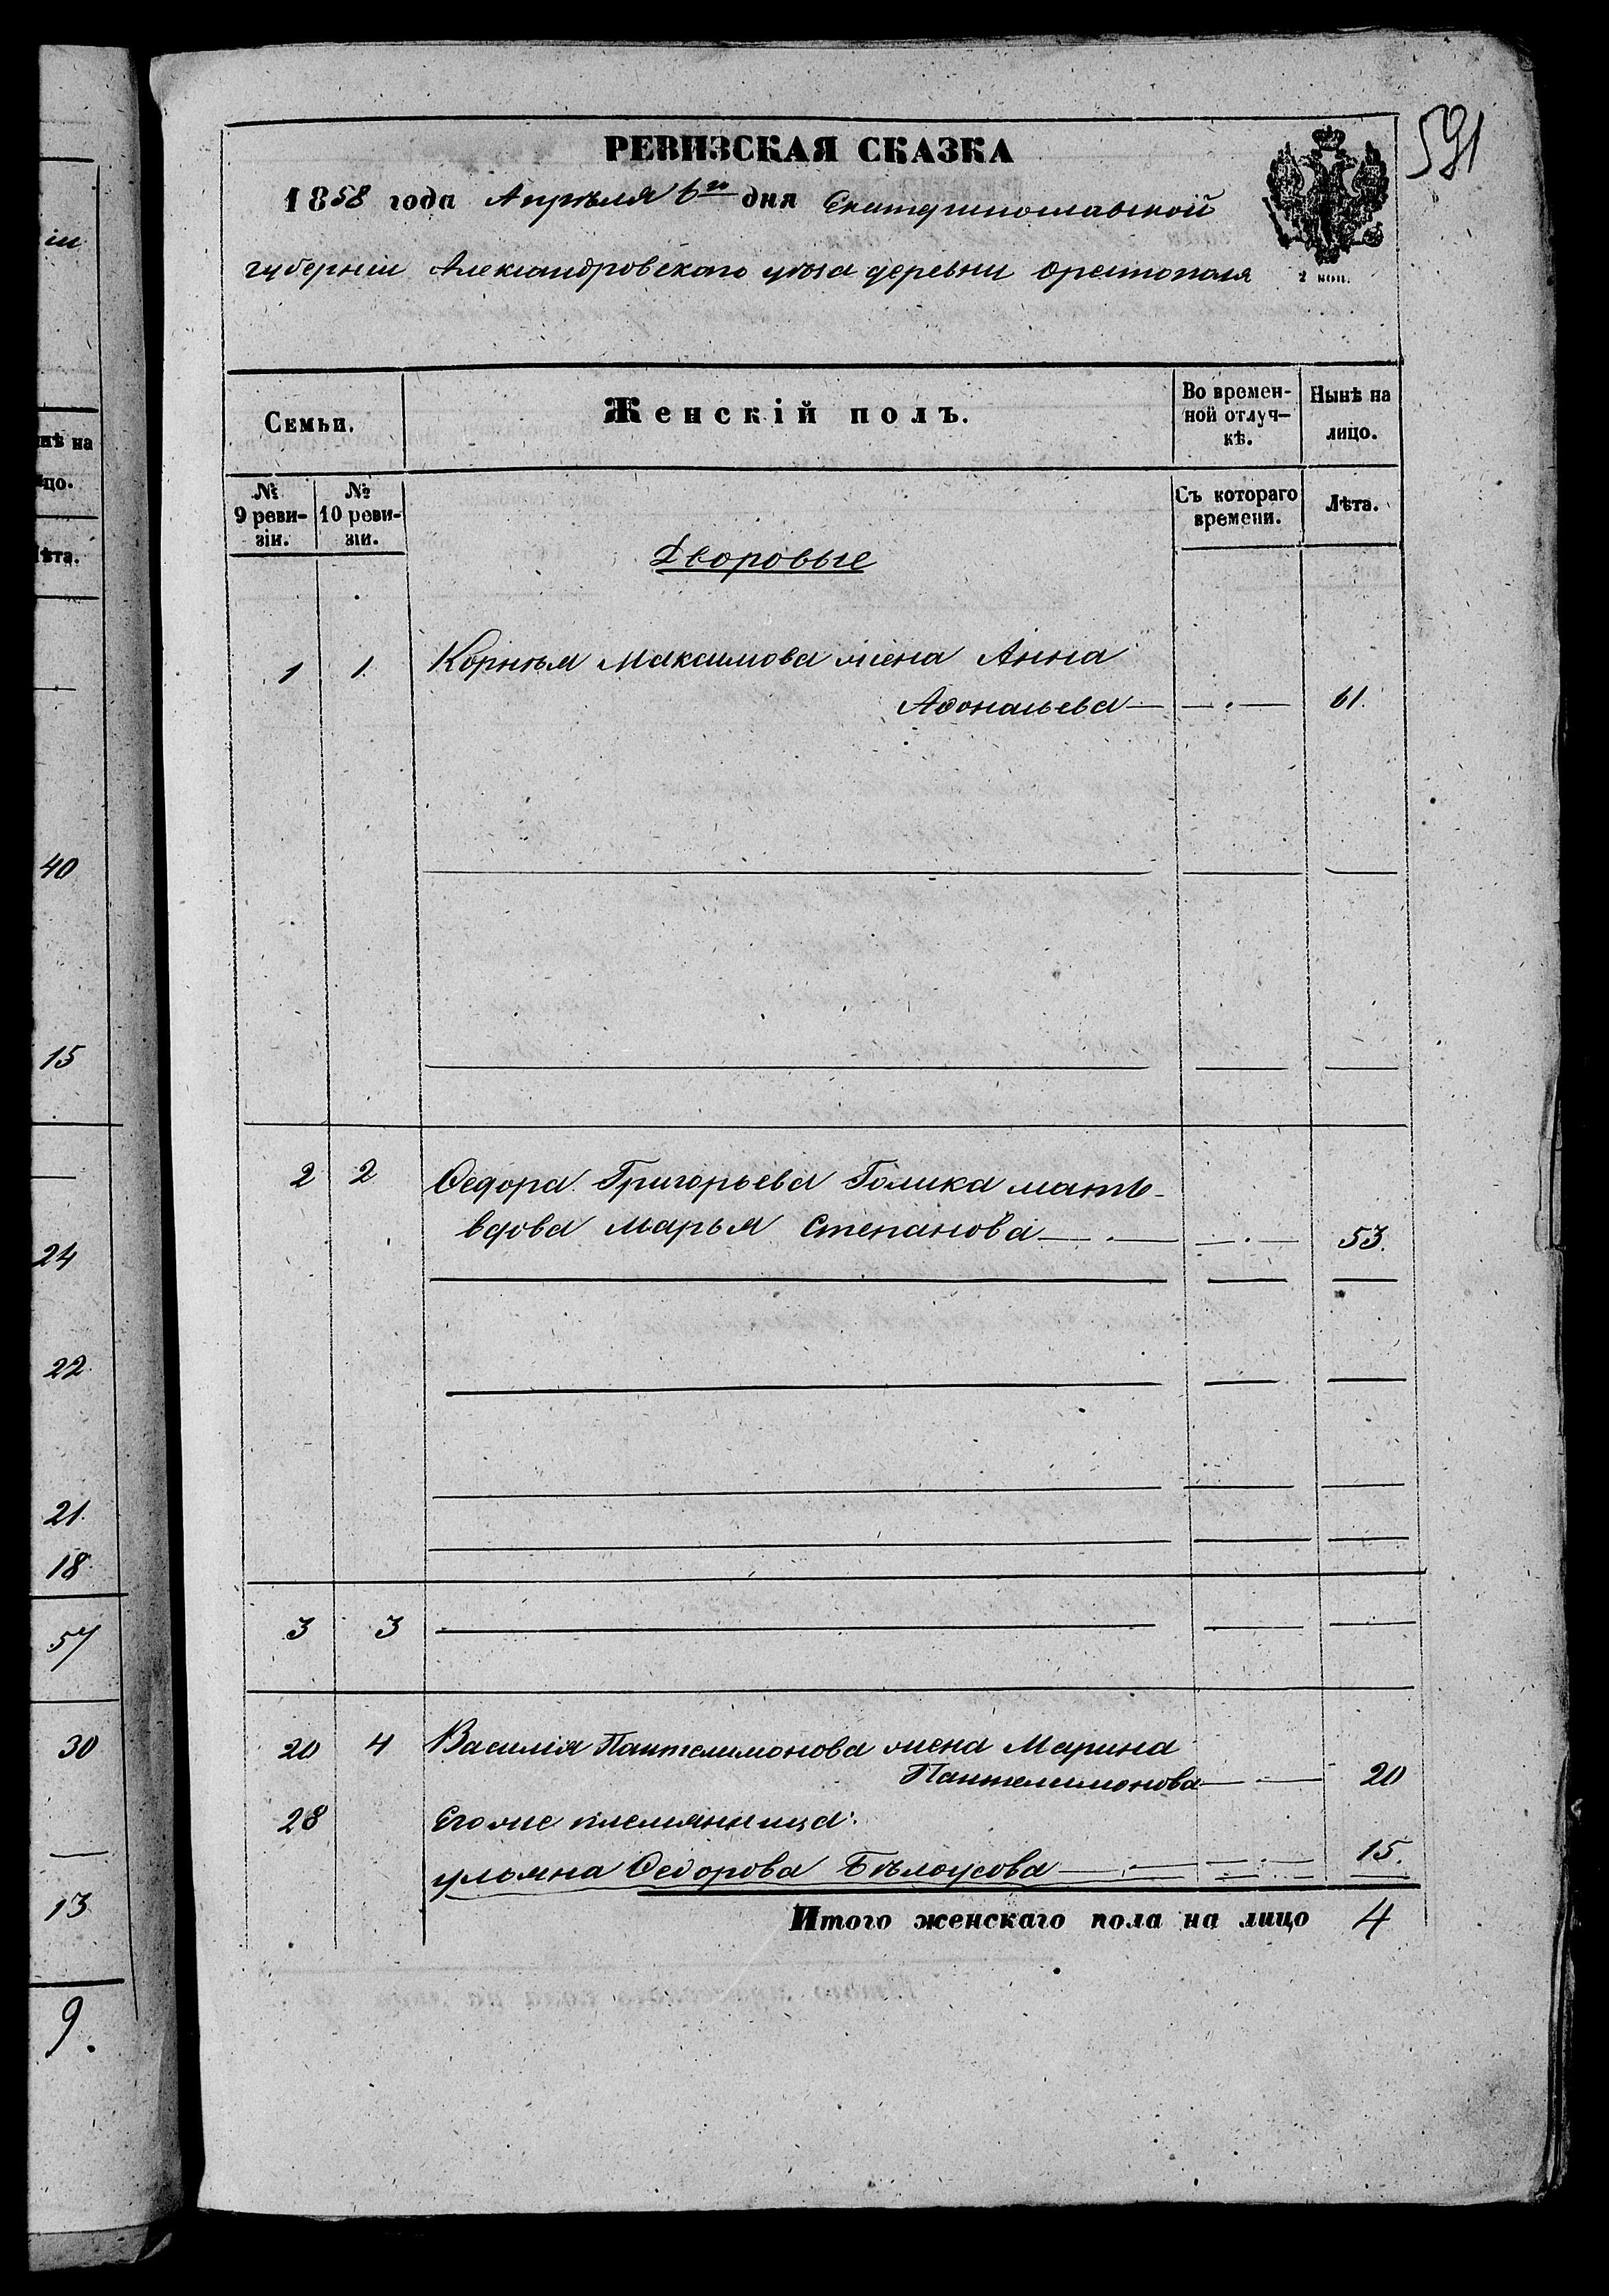 591
РЕВИЗСКАЯ СКАЗКА
1858 года Апрѣля 6го дня Екатеринославской
губерніи Александровскаго уѣзда деревни Орестополя
2 коп.
Семьи.
Женскій полъ.
Во времен-
ной отлуч-
кѣ.
Нынѣ на
лицо.
№
9 реви-
зіи.
№
10 реви-
зіи.
Съ котораго
времени.
Лѣта.
Дворовые
1 1 Корнѣя Максимова жена Анна
61.
2 2 Ѳедора Григорьева Голика мать
вдова Марья Степанова 53.
3 3
20 4 Василія Пантелимонова жена Марина
Пантелимонова 20
28 Его же племянница:
Ульяна Ѳедорова Бѣлоусова 15.
Итого женскаго пола на лицо 4
іи
нѣ на
цо.
ѣта.
40
15
24
22
21
18
57
30
13
9.